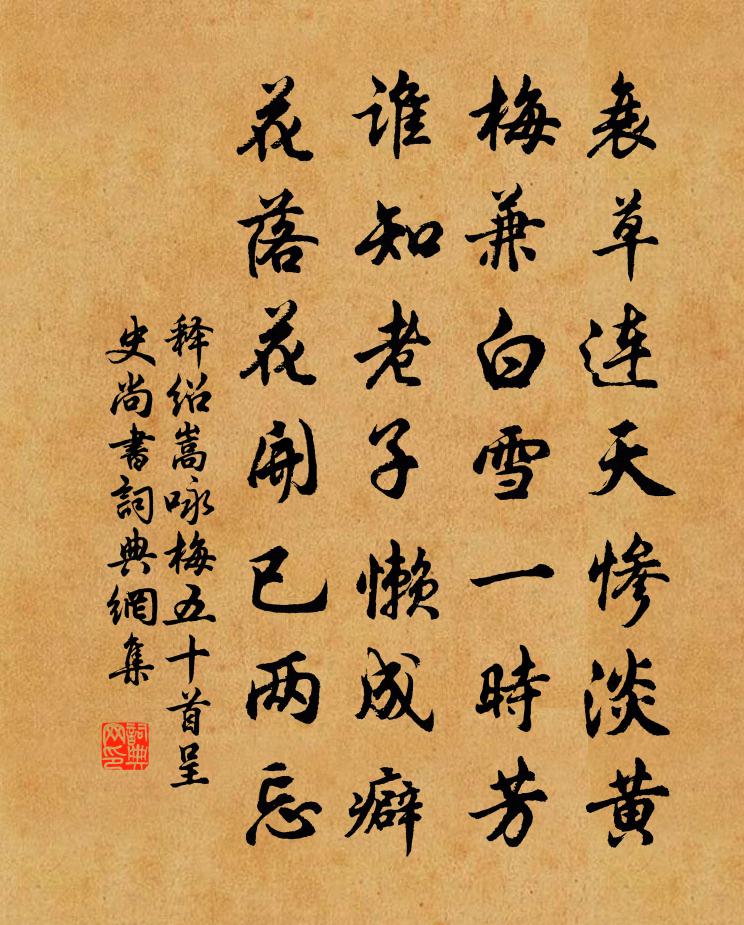 衰草连天惨淡黄
梅兼白雪一時芳
谁知老子懒成癖
花落花開已两忘
释绍嵩咏梅五十首呈
史尚書詞典網集
詞典
网印